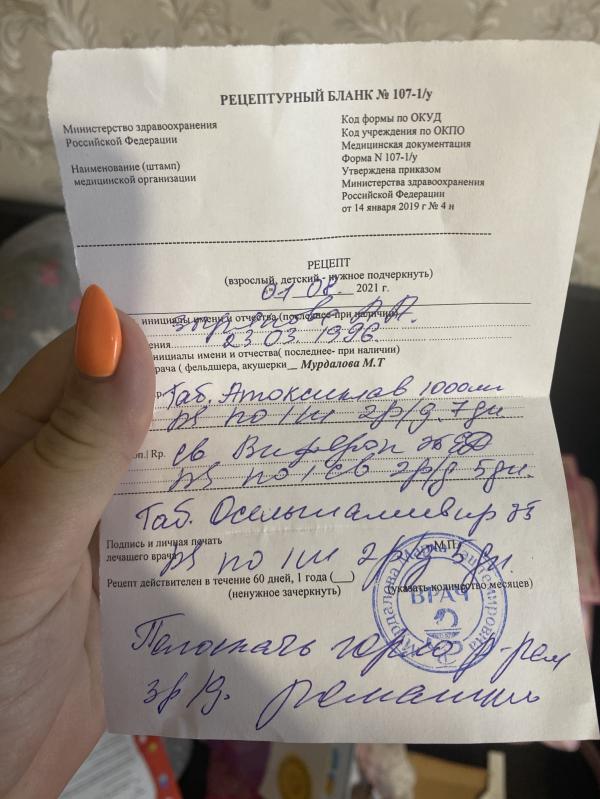 РЕЦЕПТУРНЫЙ БЛАНК № 107-1/у
Министерство здравоохранения
Российской Федерации
Наименование (штамп)
медицинской организации
Код формы по ОКУД
Код учреждения по ОКПО
Медицинская документация
Форма N 107-1/у
Утверждена приказом
Министерства здравоохранения
Российской Федерации
от 14 января 2019 г № 4 н
РЕЦЕПТ
(взрослый, детский - нужное подчеркнуть)
01 08. 2021 г.
инициалы имени и отчества (последнее-при наличии)
23.03.1996
инициалы имени и отчества( последнее- при наличии)
рача ( фельдшера, акушерки Мурдалова М.Т
Таб. Амоксиклав 1000мг
по 1 2р/д. 7дн.
Rp. св Виферон
по 1 св 2р/д 5дн.
Таб. Осельтамивир 75
Подпись и личная печать
лечащего врача
МП
по 1 2р/д 5дн.
Рецепт действителен в течение 60 дней, 1 года (___)
(ненужное зачеркнуть)
(указать количество месяцев)
ВРАЧ
Полоскать горло р-ром
3р/д. ромашки